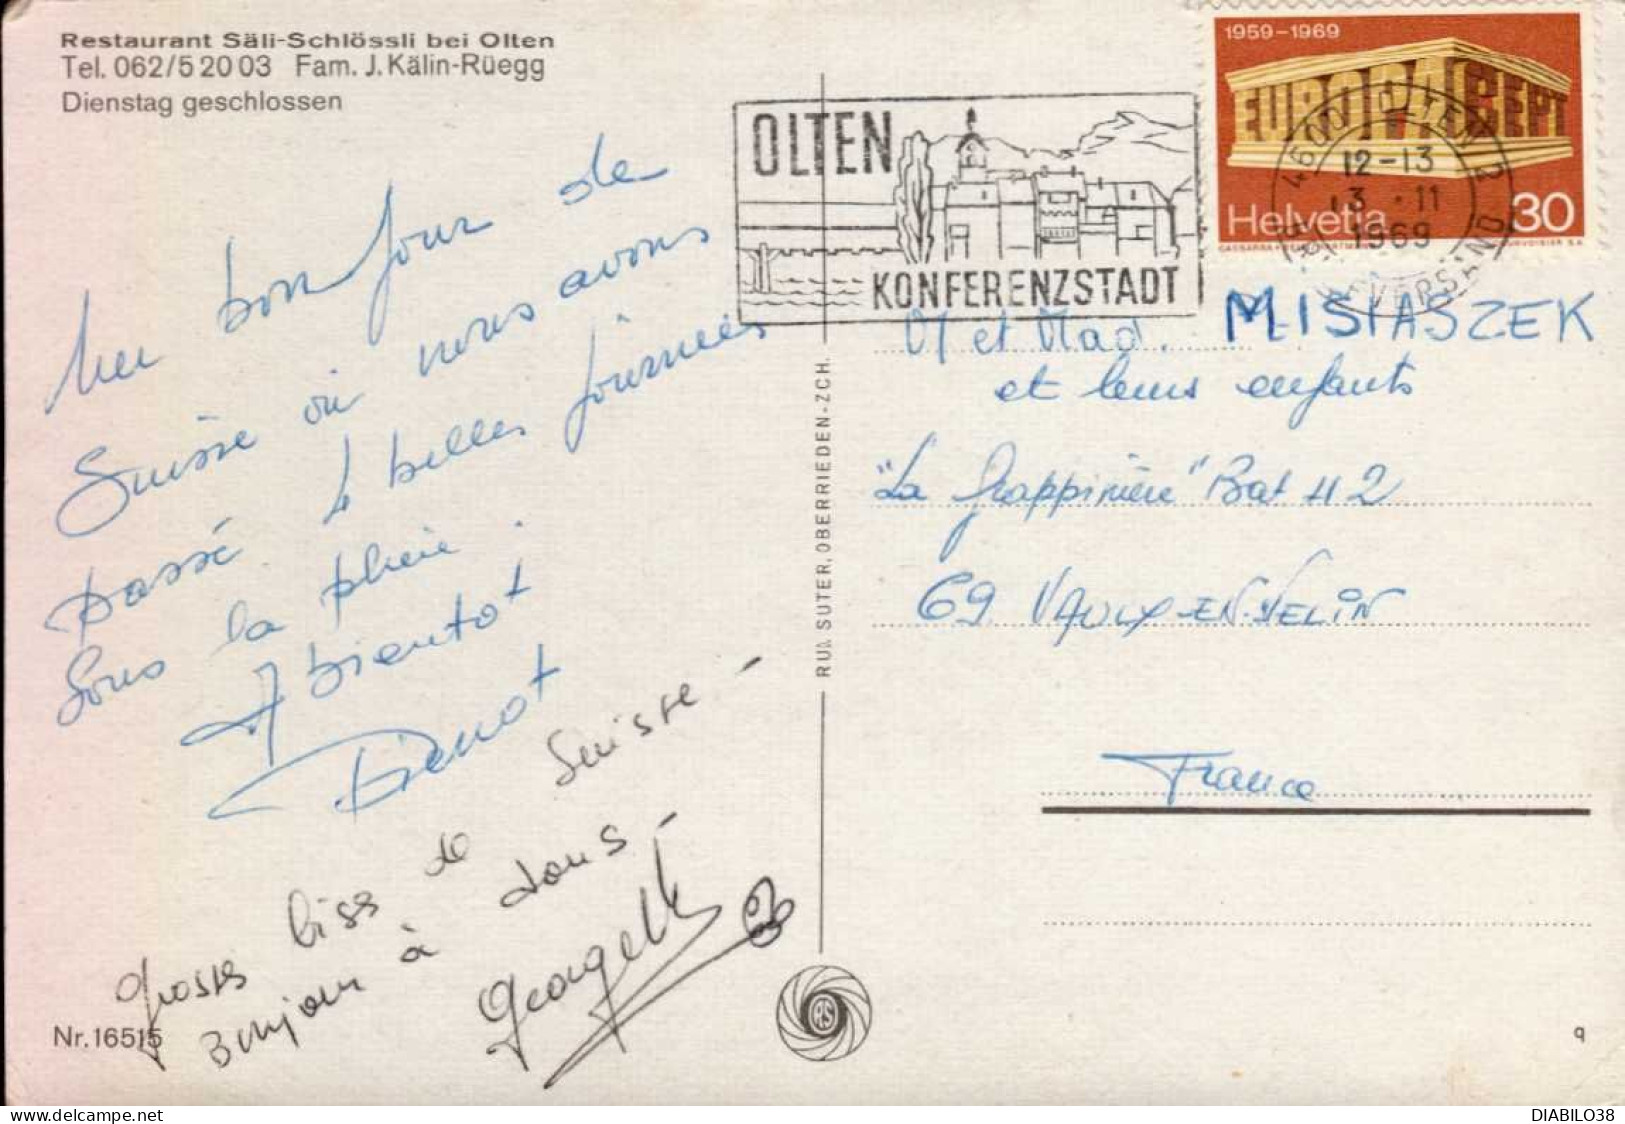 Restaurant Säli-Schlössli bei Olten
Tel. 062/5 20 03 Fam. J. Kälin-Rüegg
Dienstag geschlossen
1959-1969
EUROPA CEPT
Helvetia 30
COURVOISIER S.A.
4600 OLTEN 2
12-13
13.11
1969
VERSAND
OLTEN
KONFERENZSTADT
Un bonjour de
Suisse où nous avons
passé 4 belles journées
sous la pluie.
A bientot
Grosses bises de Suisse -
Bonjour à tous -
Georgette
M et Mad. MISIASZEK
et leurs enfants
"La Grappinière" Bat H2
69 VAULX-EN-VELIN
France
RUD. SUTER, OBERRIEDEN-ZCH.
RS
Nr. 16515
q
DIABILO38